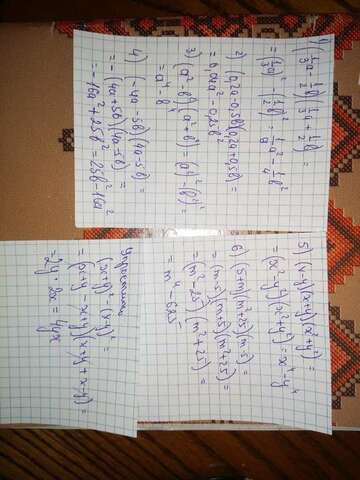 1) (1/3 a - 1/2 b)(1/3 a + 1/2 b) =
= (1/3 a)² - (1/2 b)² = 1/9 a² - 1/4 b²
2) (0,2a-0,5b)(0,2a+0,5b) =
= 0,04a² - 0,25b²
3) (a²-b²)(a²+b²) = (a²)²-(b²)² =
= a⁴ - b⁴
4) (-4a-5b)(4a-5b) =
= -(4a+5b)(4a-5b) =
= -16a²+25b² = 25b²-16a²
5) (x-y)(x+y)(x²+y²) =
= (x²-y²)(x²+y²) = x⁴-y⁴
6) (5+m)(m²+25)(m-5) =
= (m-5)(m+5)(m²+25) =
= (m²-25)(m²+25) =
= m⁴-625
Упростить
(x+y)²-(x-y)² =
= (x+y-x+y)(x+y+x-y) =
= 2y · 2x = 4yx